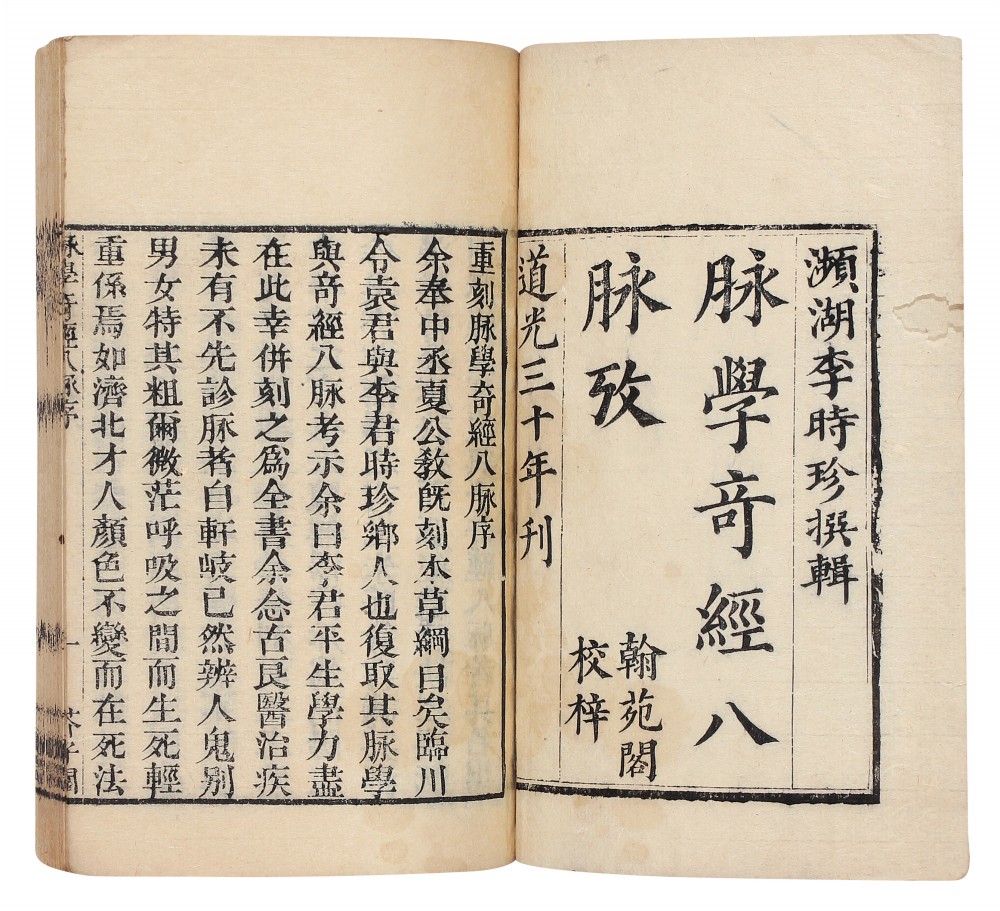 瀕湖李時珍撰輯
脉學奇經八
脉攷
翰苑閣
校梓
道光三十年刊
重刻脉學奇經八脉序
余奉中丞夏公敎旣刻本草綱目矣臨川
令袁君與李君時珍鄉人也復取其脉學
與奇經八脉考示余曰李君平生學力盡
在此幸併刻之爲全書余念古良醫治疾
未有不先診脉者自軒岐已然辨人鬼别
男女特其粗爾微茫呼吸之間而生死輕
重係焉如濟北才人顏色不變而在死法
脉學奇經八脉序
一
芥子閣